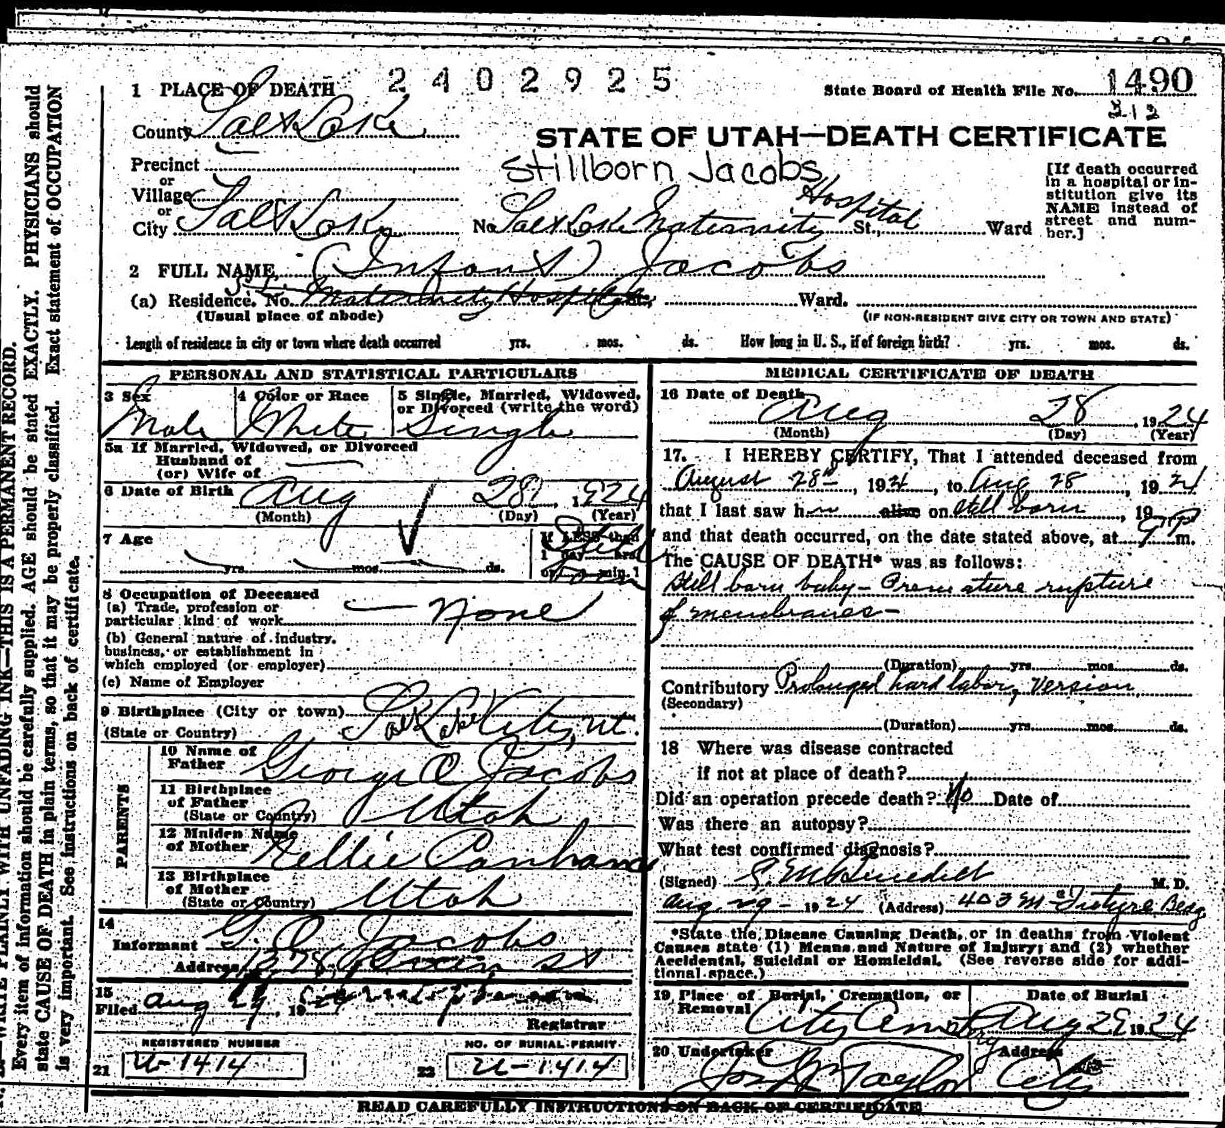 2402925
1 PLACE OF DEATH
State Board of Health File No. 1490
312
County Salt Lake
STATE OF UTAH—DEATH CERTIFICATE
Stillborn Jacobs
Precinct
or
Village
or
City Salt Lake No. Salt Lake Maternity Hospital St., Ward
[If death occurred
in a hospital or in-
stitution give its
NAME instead of
street and num-
ber.]
2 FULL NAME (Infant) Jacobs
(a) Residence, No. Maternity Hospital Ward.
(Usual place of abode)
(IF NON-RESIDENT GIVE CITY OR TOWN AND STATE)
Length of residence in city or town where death occurred yrs. mos. ds. How long in U. S., if of foreign birth? yrs. mos. ds.
PERSONAL AND STATISTICAL PARTICULARS
3 Sex
Male
4 Color or Race
White
5 Single, Married, Widowed,
or Divorced (write the word)
Single
5a If Married, Widowed, or Divorced
Husband of
(or) Wife of
6 Date of Birth Aug 28, 1924
(Month) (Day) (Year)
7 Age
yrs. mos. ds.
If LESS than
1 day hrs
or min.
Still
born
8 Occupation of Deceased
(a) Trade, profession or
particular kind of work None
(b) General nature of industry,
business, or establishment in
which employed (or employer)
(c) Name of Employer
9 Birthplace (City or town) Salt Lake City, Ut.
(State or Country)
PARENTS
10 Name of
Father George O Jacobs
11 Birthplace
of Father
(State or Country) Utah
12 Maiden Name
of Mother Nellie Canham
13 Birthplace
of Mother
(State or Country) Utah
14
Informant G. O. Jacobs
Address St
15
Filed Aug 29, 1924
Registrar
REGISTERED NUMBER
21 U-1414
NO. OF BURIAL PERMIT
22 U-1414
MEDICAL CERTIFICATE OF DEATH
16 Date of Death
Aug 28, 1924
(Month) (Day) (Year)
17. I HEREBY CERTIFY, That I attended deceased from
August 28th, 1924, to Aug 28, 1924
that I last saw him alive on still born, 19
and that death occurred, on the date stated above, at 9 P m.
The CAUSE OF DEATH* was as follows:
Still born baby - Premature rupture
of membranes -
(Duration) yrs. mos. ds.
Contributory Prolonged hard labor, Version
(Secondary)
(Duration) yrs. mos. ds.
18 Where was disease contracted
if not at place of death?
Did an operation precede death? No Date of
Was there an autopsy?
What test confirmed diagnosis?
(Signed) M. D.
Aug 29 - 1924 (Address) 403
*State the Disease Causing Death, or in deaths from Violent
Causes state (1) Means and Nature of Injury; and (2) whether
Accidental, Suicidal or Homicidal. (See reverse side for addi-
tional space.)
19 Place of Burial, Cremation, or
Removal City Cemetry
Date of Burial
Aug 29 1924
20 Undertaker
Taylor
Address
City
READ CAREFULLY INSTRUCTIONS ON BACK OF CERTIFICATE
WRITE PLAINLY WITH UNFADING INK—THIS IS A PERMANENT RECORD.
Every item of information should be carefully supplied. AGE should be stated EXACTLY. PHYSICIANS should
state CAUSE OF DEATH in plain terms, so that it may be properly classified. Exact statement of OCCUPATION
is very important. See instructions on back of certificate.